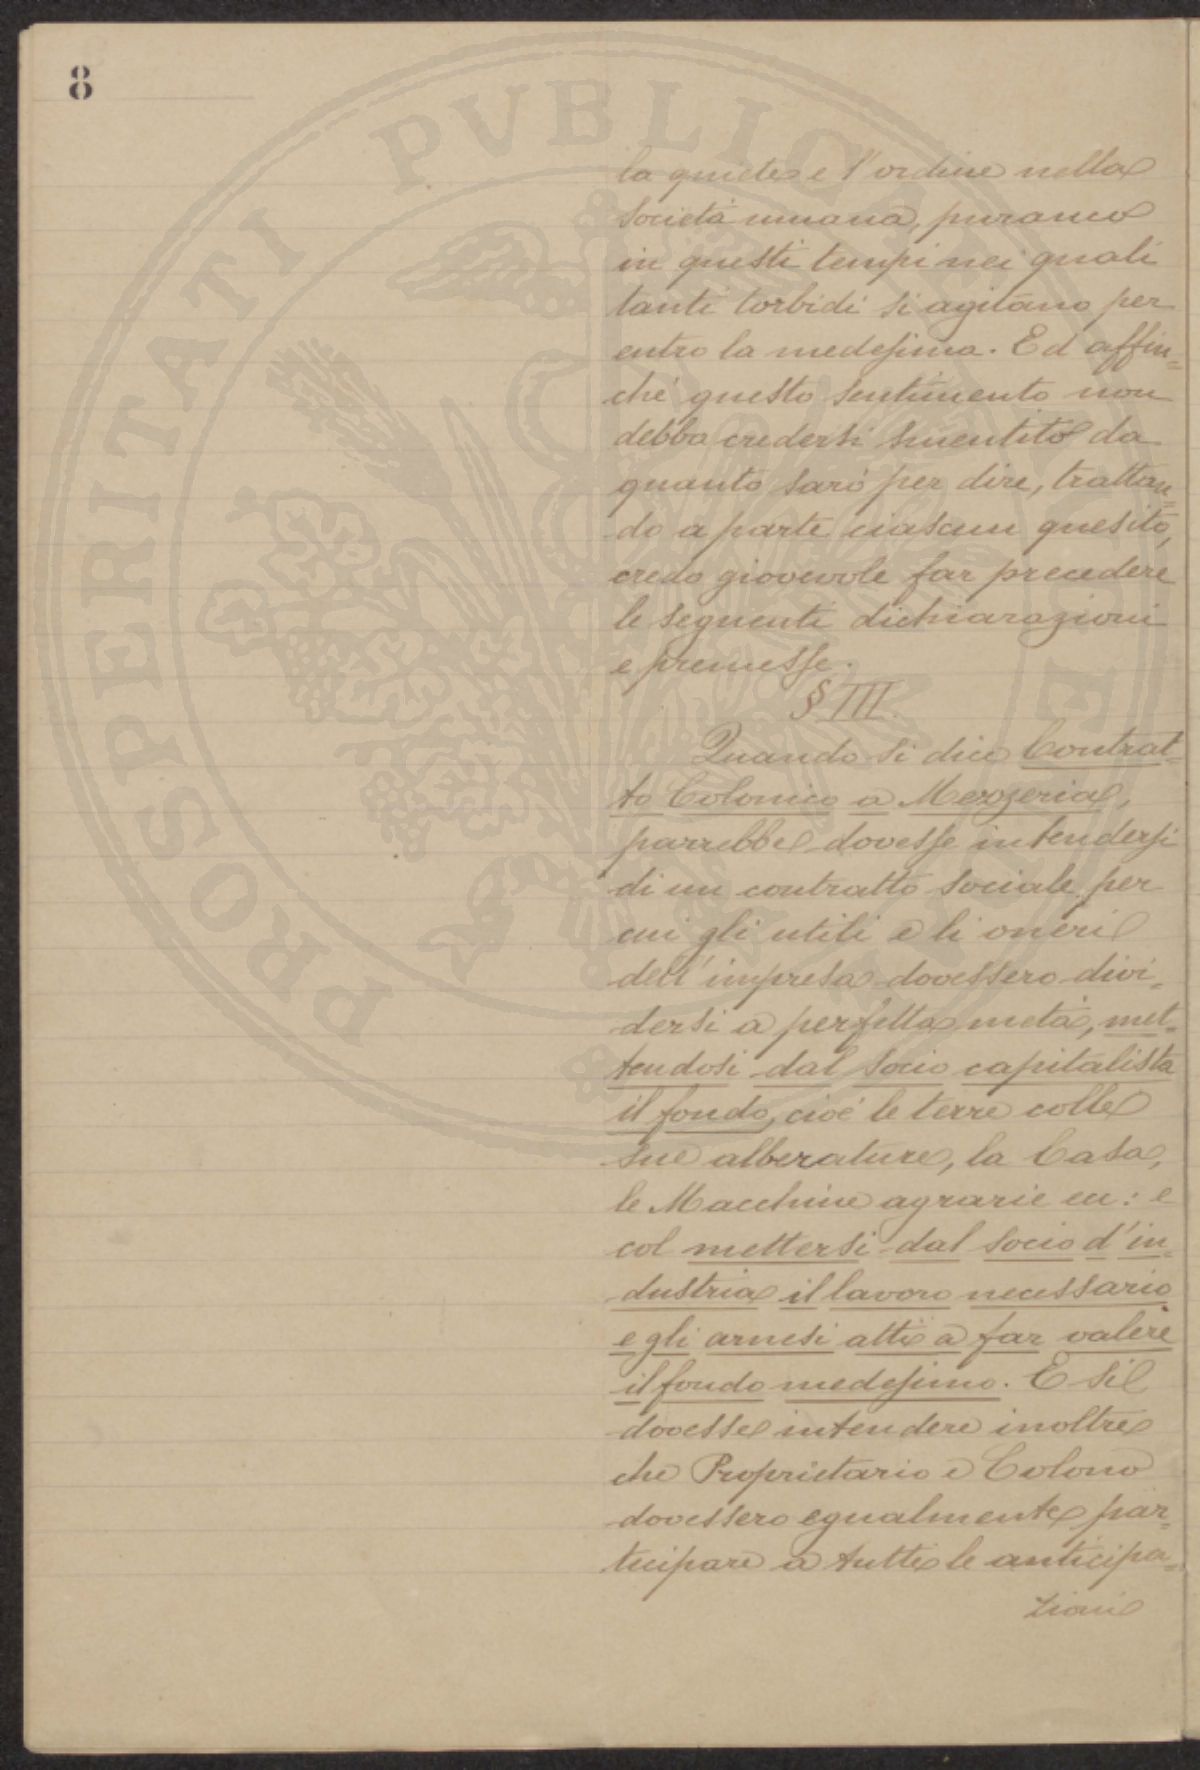 8
PROSPERITATI PVBLICAE
la quiete e l'ordine nella
Società umana, puranco
in questi tempi nei quali
tanti torbidi si agitano per
entro la medesima. Ed affin=
ché questo sentimento non
debba credersi smentito da
quanto sarò per dire, trattan=
do a parte ciascun quesito,
credo giovevole far precedere
le seguenti dichiarazioni
e premesse.
§ III.
Quando si dice Contrat=
to Colonico a Mezzeria,
parrebbe dovesse intendersi
di un contratto sociale per
cui gli utili e li oneri
dell'impresa dovessero divi=
dersi a perfetta metà, met=
tendosi dal socio capitalista
il fondo, cioè le terre colle
sue alberature, la Casa,
le Macchine agrarie ecc: e
col mettersi dal socio d'in=
dustria il lavoro necessario
e gli arnesi atti a far valere
il fondo medesimo. E si
dovesse intendere inoltre
che Proprietario e Colono
dovessero egualmente par=
tecipare a tutte le anticipa=
zioni